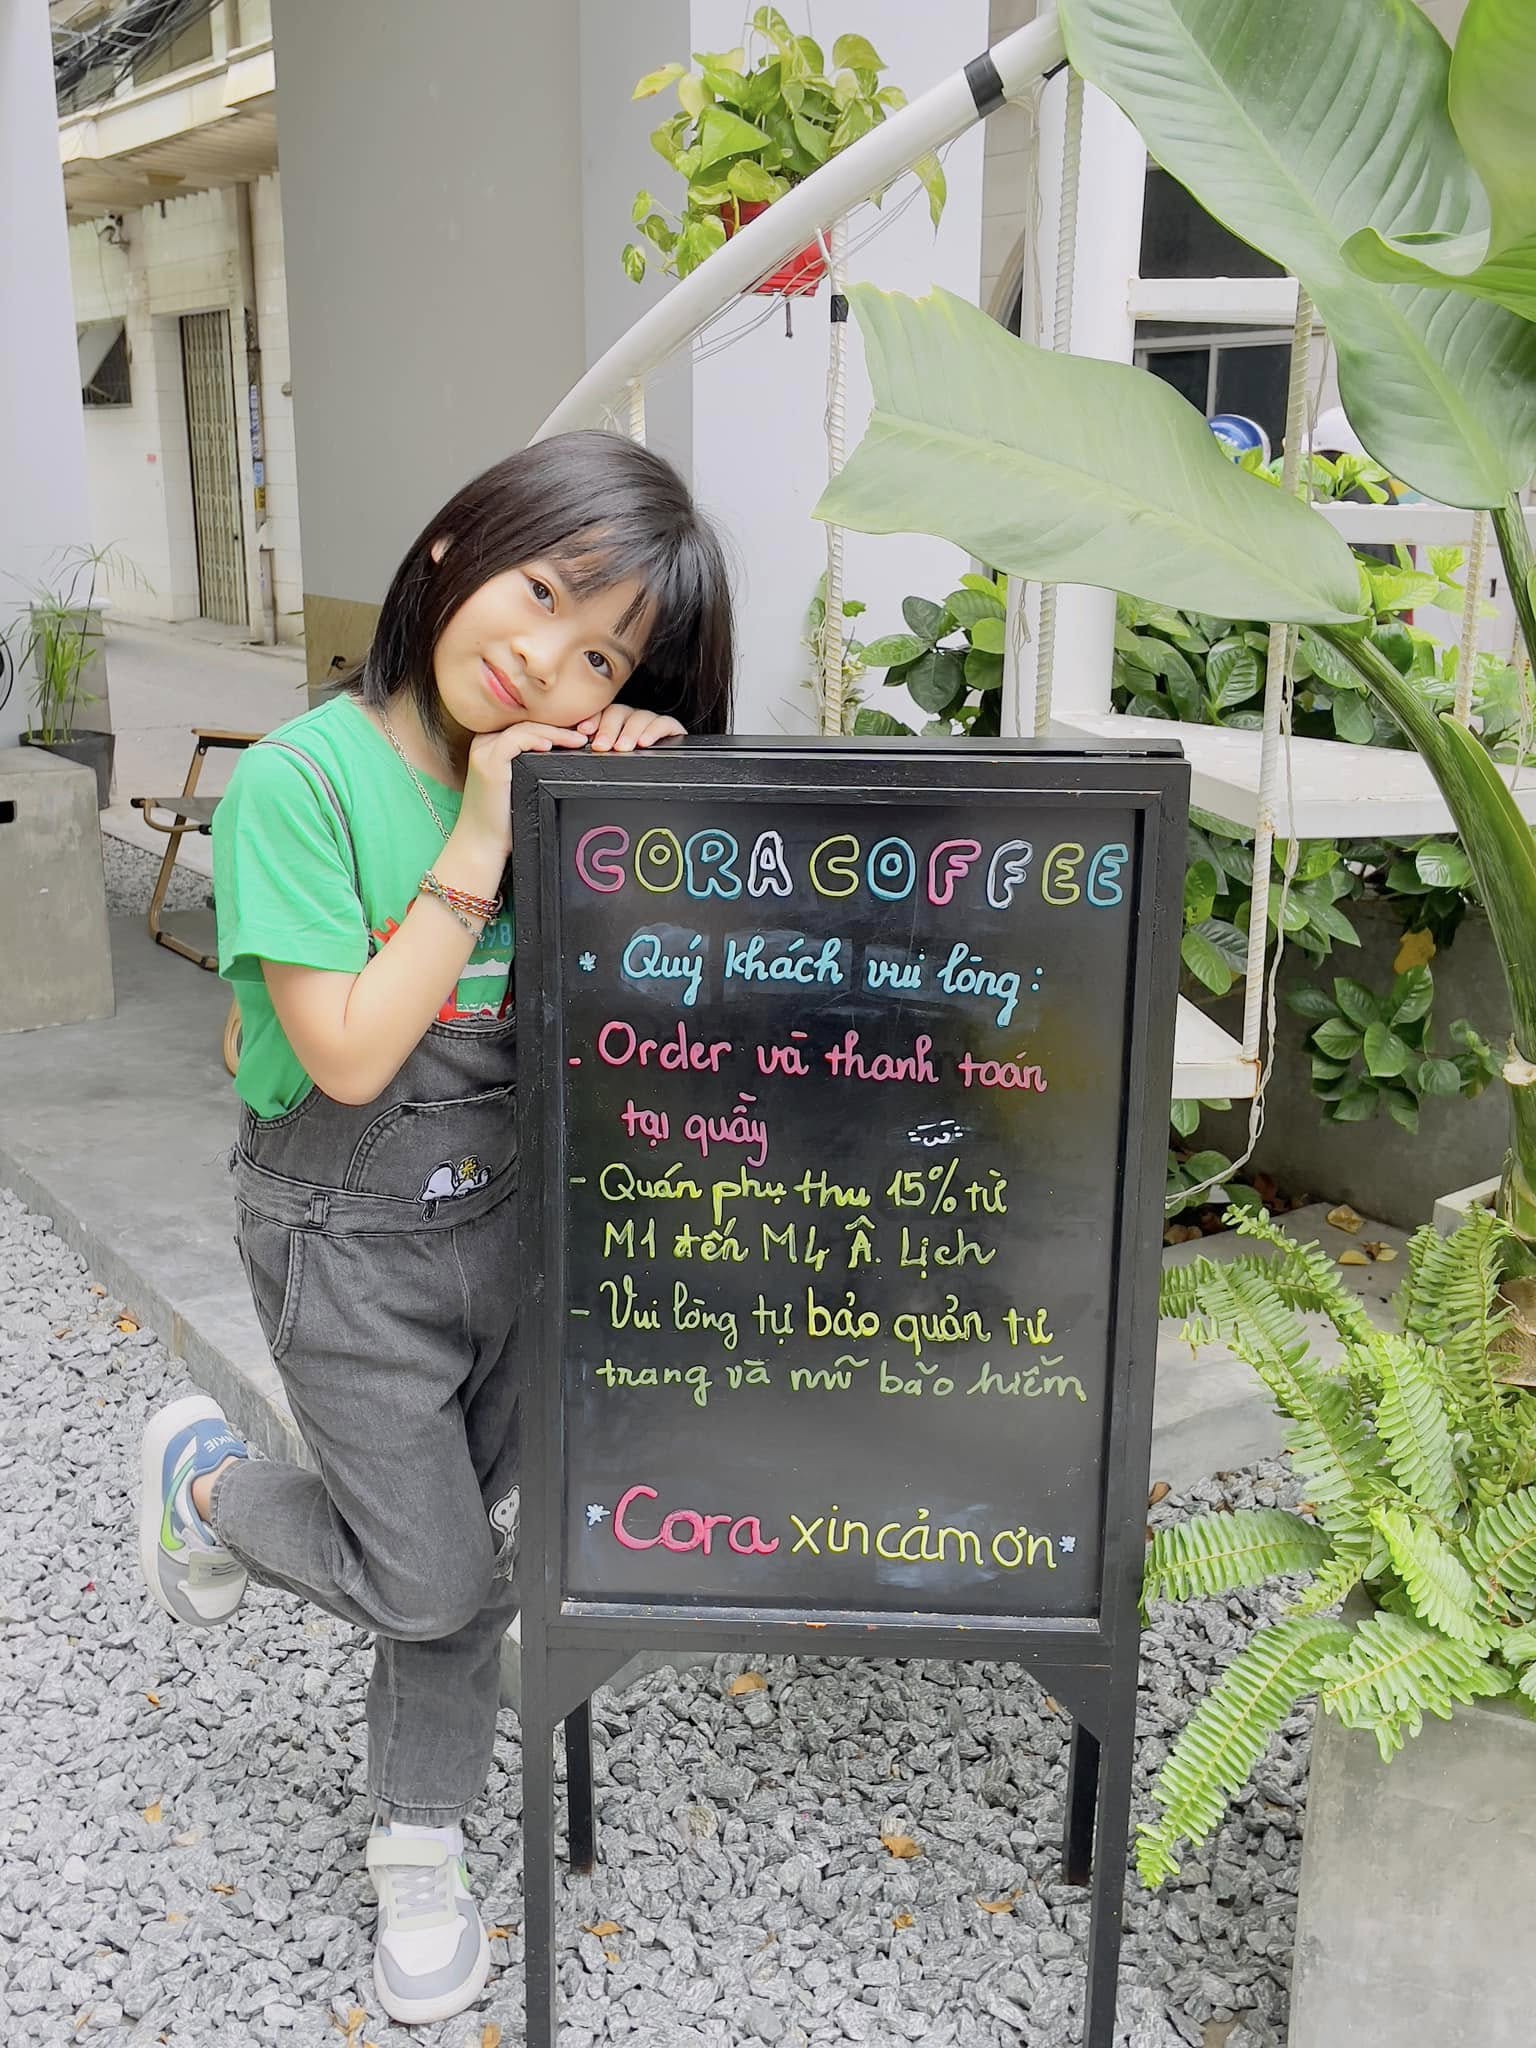 CORA COFFEE
* Quý khách vui lòng:
- Order và thanh toán
tại quầy
- Quán phụ thu 15% từ
M1 đến M4 Â. Lịch
- Vui lòng tự bảo quản tư
trang và mũ bảo hiểm
* Cora xin cảm ơn *